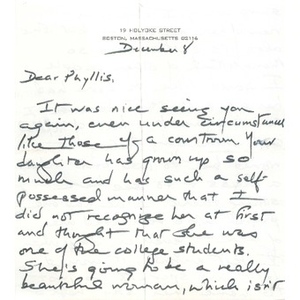 19 HOLYOKE STREET
BOSTON, MASSACHUSETTS 02116
December 8
Dear Phyllis,
It was nice seeing you
again, even under circumstances
like those of a courtroom. Your
daughter has grown up so
much and has such a self-
possessed manner that I
did not recognize her at first
and thought that she was
one of the college students.
She's going to be a really
beautiful woman, which isn't